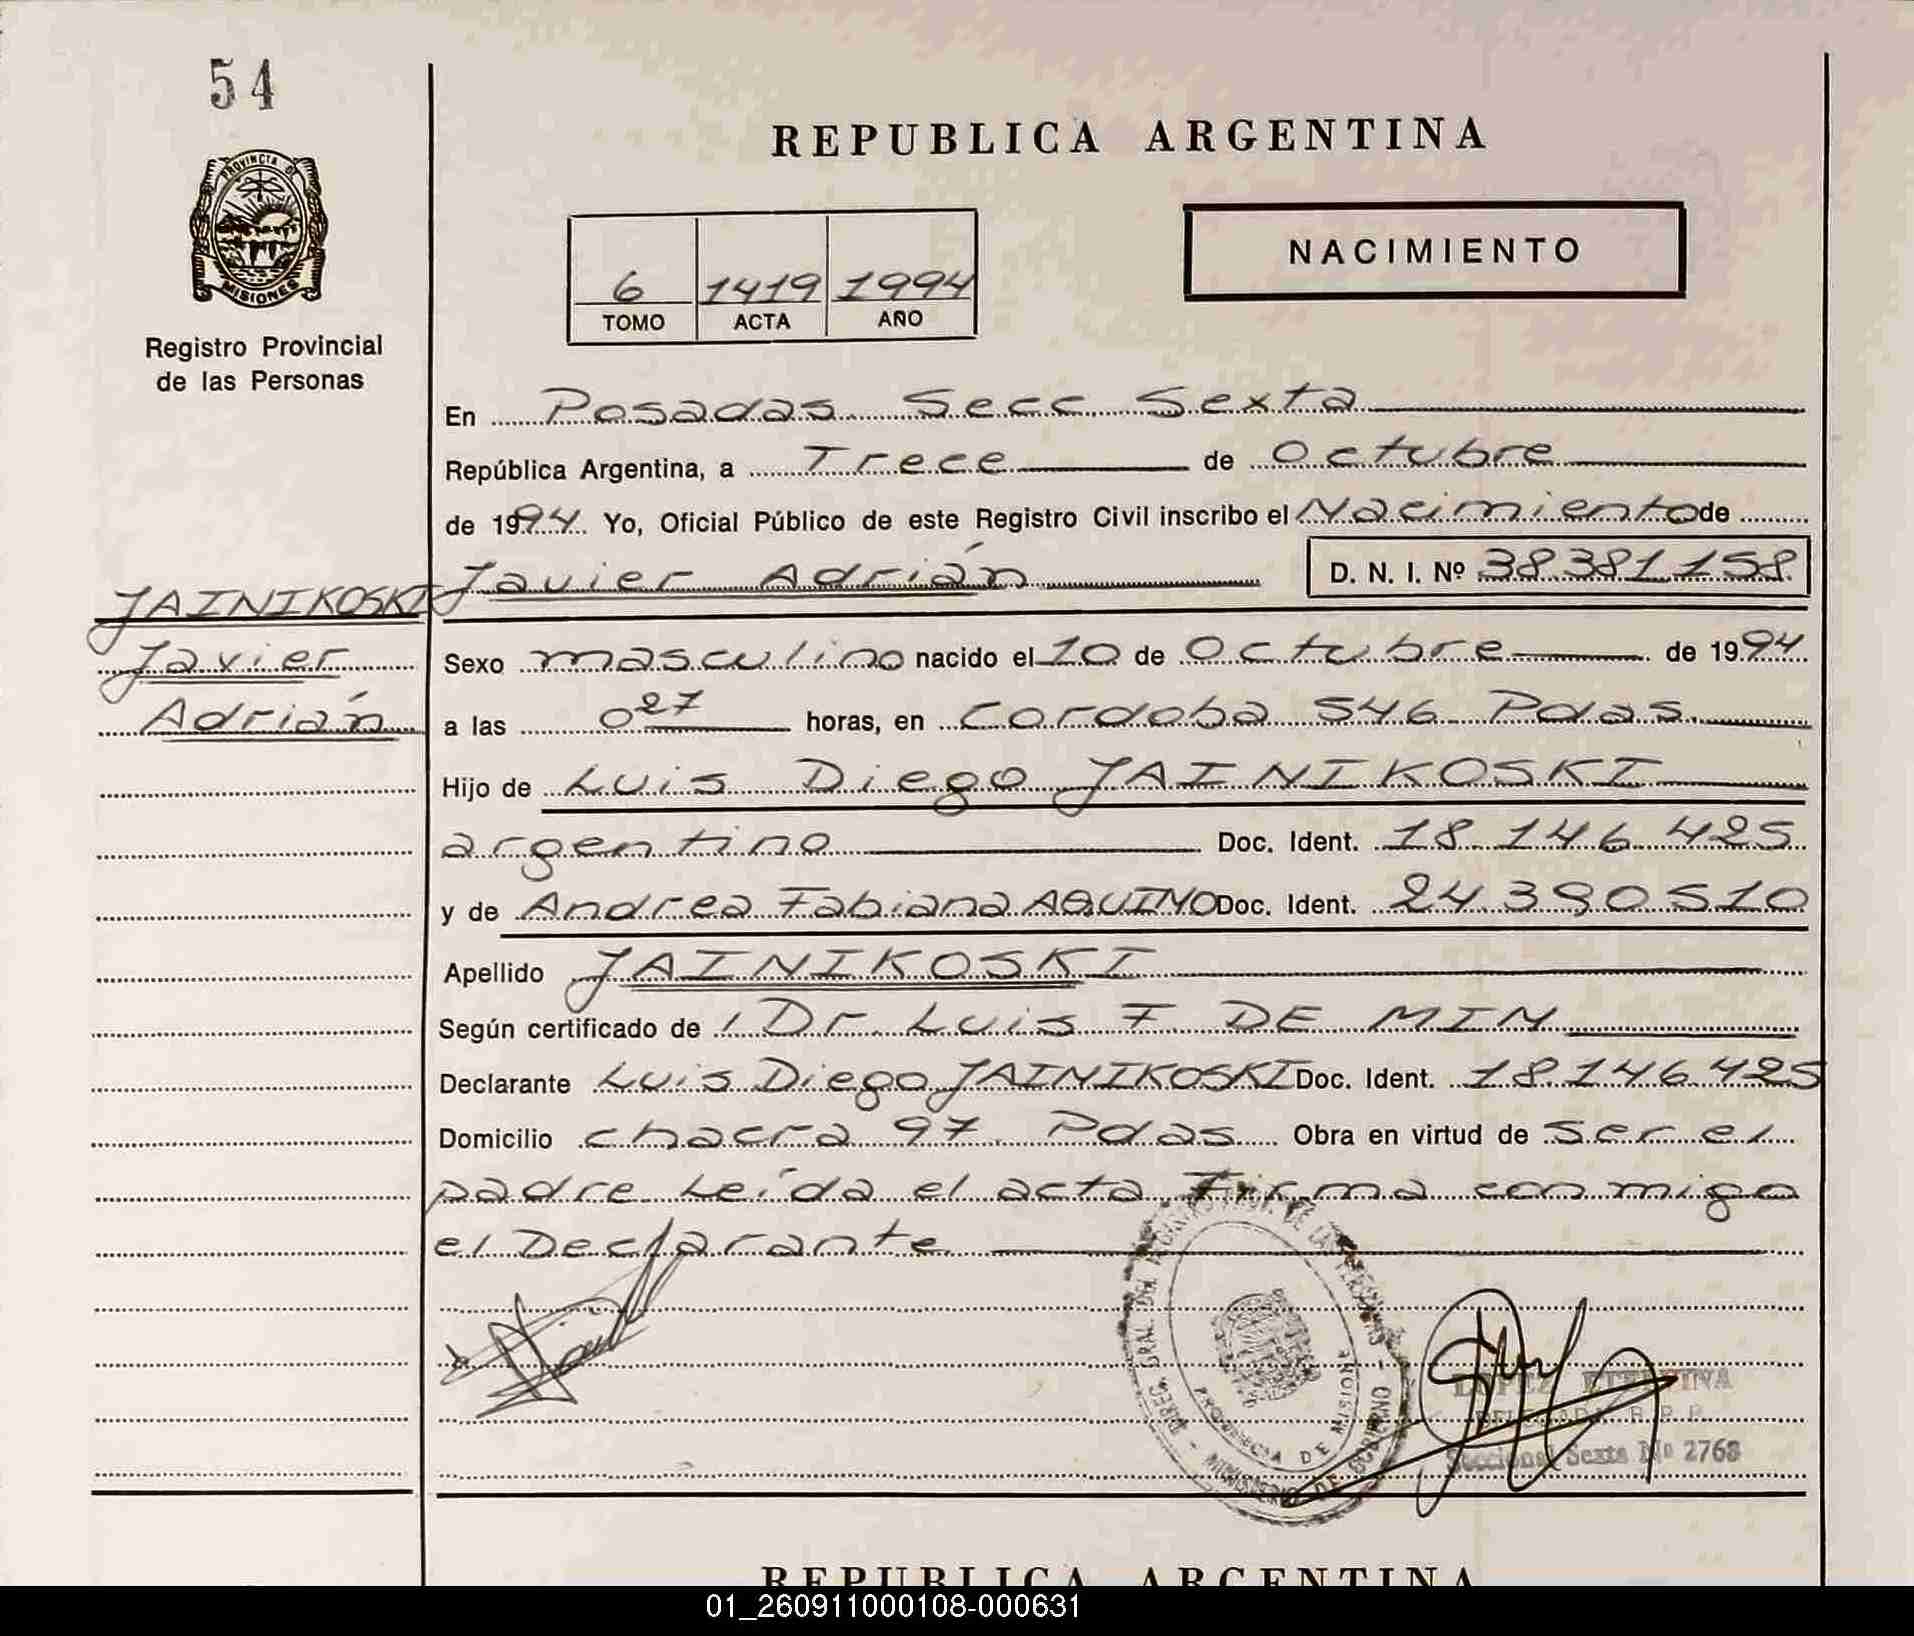 54
PROVINCIA DE
MISIONES
Registro Provincial
de las Personas
JAINIKOSKI
Javier
Adrián
REPUBLICA ARGENTINA
6 1419 1994
TOMO ACTA AÑO
NACIMIENTO
En Posadas Secc Sexta
República Argentina, a Trece de Octubre
de 1994. Yo, Oficial Público de este Registro Civil inscribo el Nacimiento de
Javier Adrián D. N. I. Nº 38.381.158
Sexo masculino nacido el 10 de Octubre de 1994
a las 0 27 horas, en Cordoba 546 Pdas.
Hijo de Luis Diego JAINIKOSKI
argentino Doc. Ident. 18.146.425
y de Andrea Fabiana AQUINO Doc. Ident. 24.390.510
Apellido JAINIKOSKI
Según certificado de Dr. Luis F DE MIN
Declarante Luis Diego JAINIKOSKI Doc. Ident. 18.146.425
Domicilio chacra 97 Pdas. Obra en virtud de ser el
padre Leída el acta Firma con migo
el Declarante
DIREC. GRAL. DEL DE LAS PERSONAS - MINISTERIO DE GOBIERNO -
PROVINCIA DE MISIONES
LOPEZ
DELEGADA R. P. P.
Seccional Sexta Nº 2763
REPUBLICA ARGENTINA
01_260911000108-000631